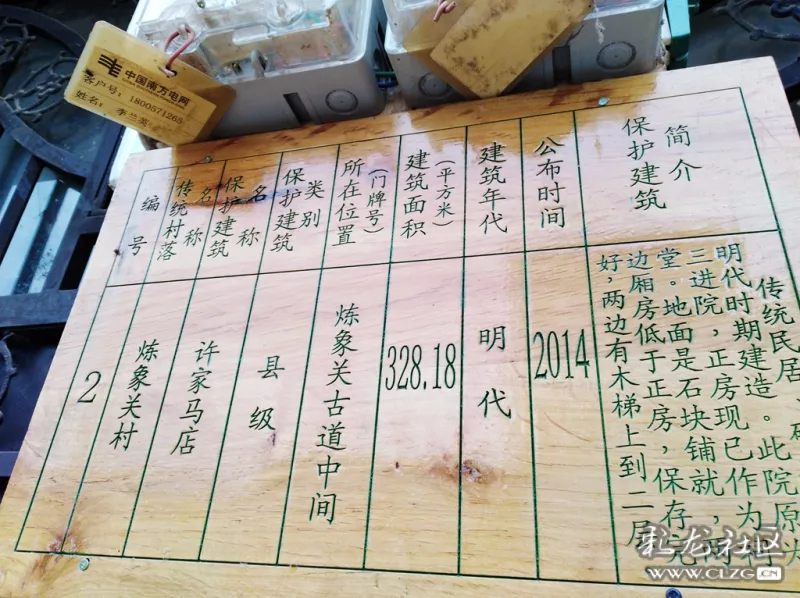 中国南方电网
客户号：1800571265
姓名：李兰英
编号
传统村落名称
保护建筑名称
保护建筑类别
所在位置（门牌号）
建筑面积（平方米）
建筑年代
公布时间
保护建筑简介
2
炼象关村
许家马店
县级
炼象关古道中间
328.18
明代
2014
传统民居
明代时期建造。此院原为
三进院，正房现已作为
堂。地面是石块铺就，两
边厢房低于正房，保存完
好，两边有木梯上到二层
乳龙社区
WWW.CLZG.CN